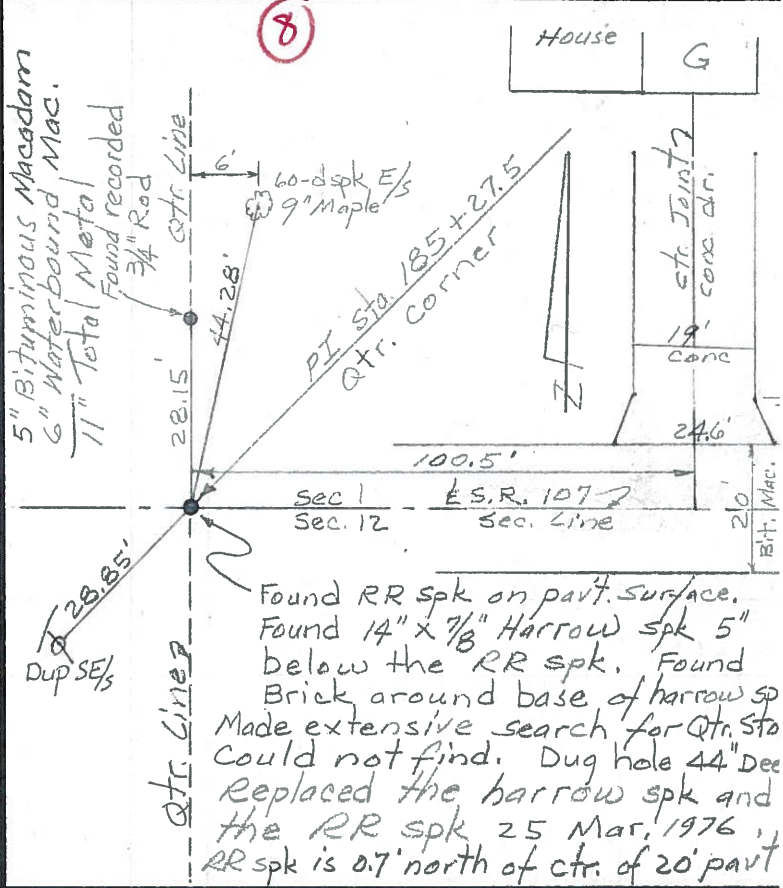 8
House
G
5" Bituminous Macadam
6" Waterbound Mac.
11" Total Metal
Found recorded
3/4" Rod
Qtr. Line
6'
60-d spk E/s
9" Maple
44.28'
28.15'
PI Sta. 185+27.5
Qtr. Corner
N
ctr. Joint
conc dr.
19'
conc
24.6'
100.5'
Sec 1
Sec. 12
S.R. 107
Sec. Line
20'
Bit. Mac.
28.85'
Dup SE/s
Qtr. Line
Found RR spk on pav't. surface.
Found 14" X 7/8" Harrow spk 5"
below the RR spk. Found
Brick around base of harrow sp
Made extensive search for Qtr. Sto
Could not find. Dug hole 44" Dee
Replaced the harrow spk and
the RR spk 25 Mar. 1976.
RR spk is 0.7' north of ctr. of 20' pav't